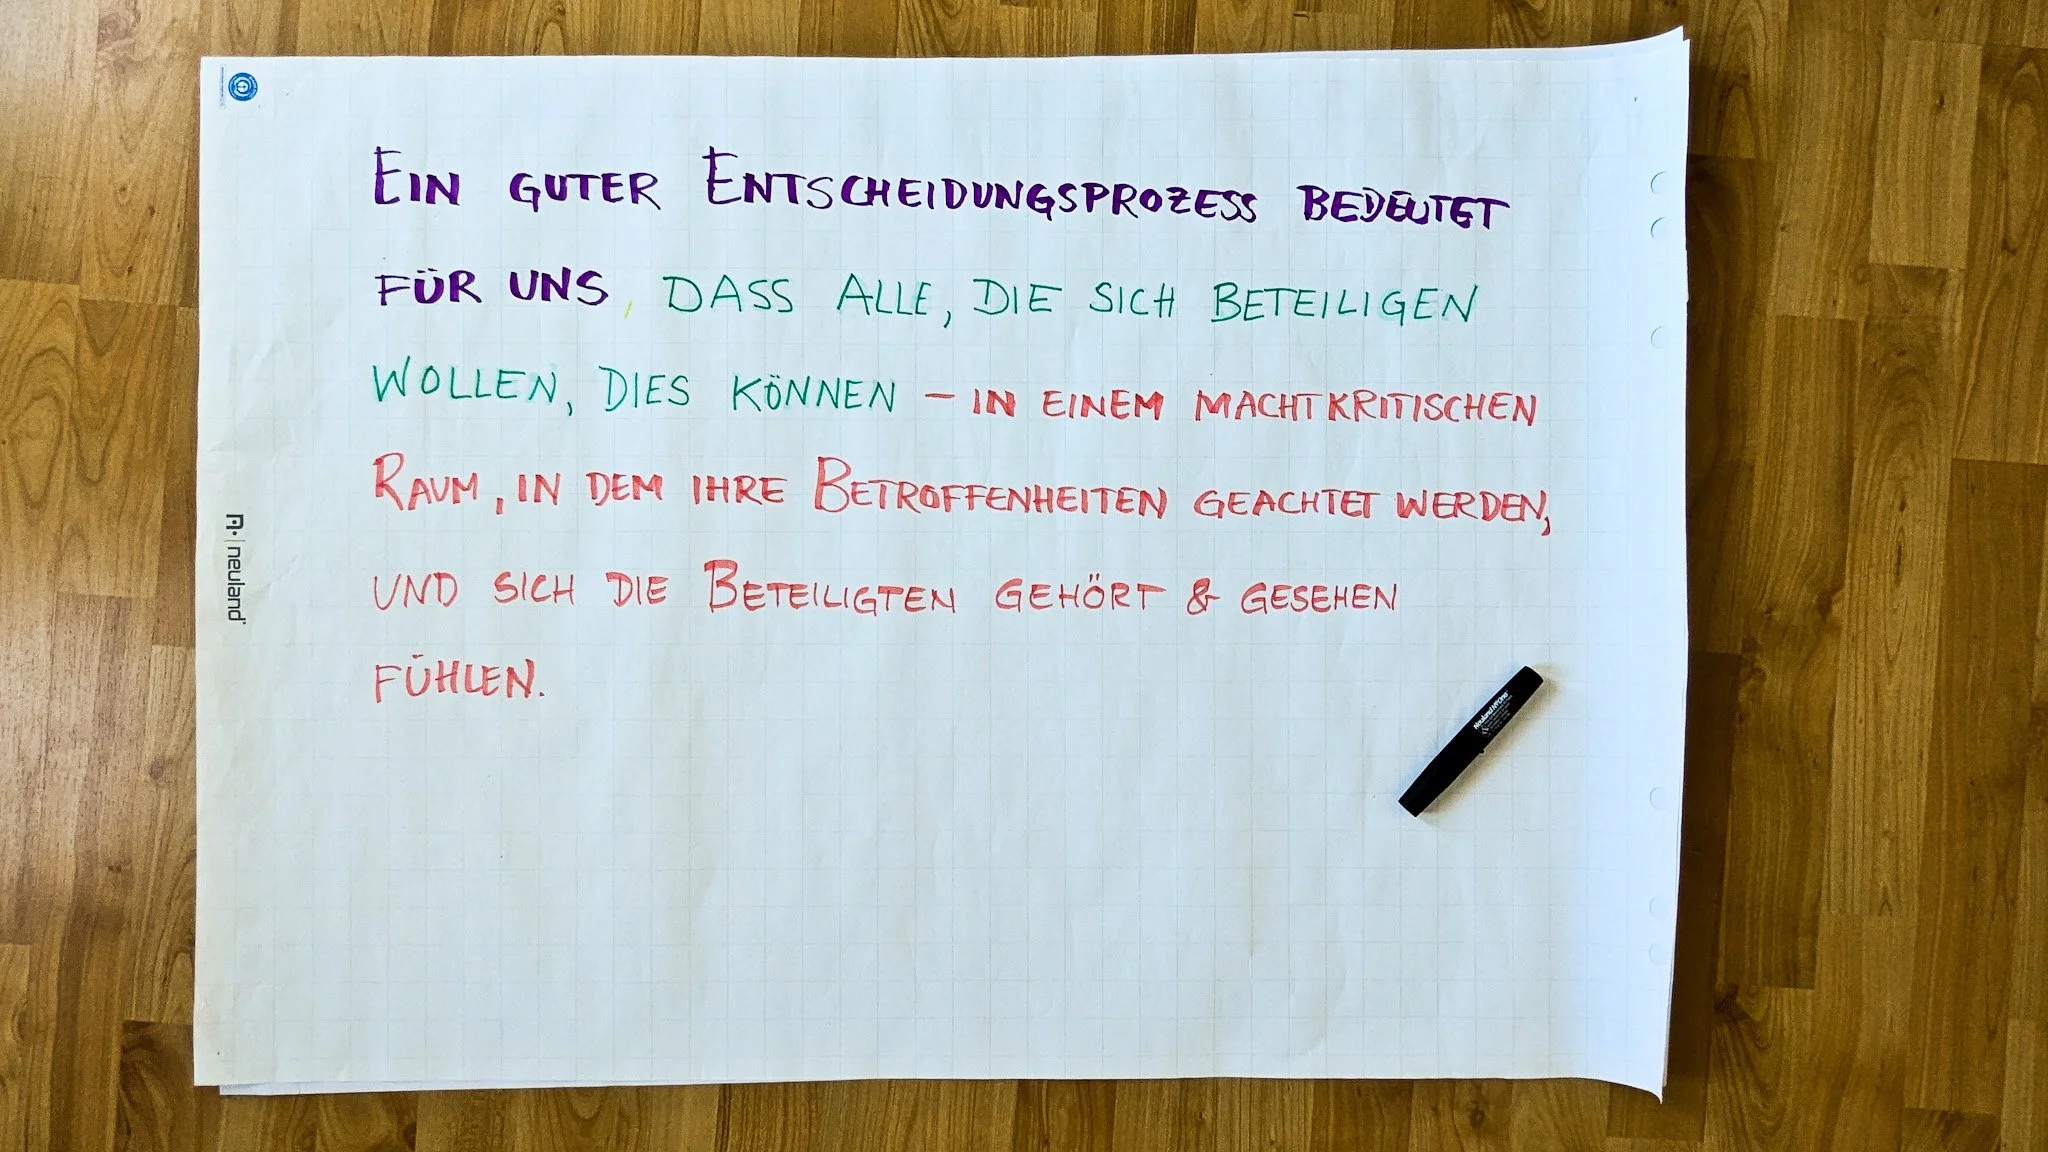 EIN GUTER ENTSCHEIDUNGSPROZESS BEDEUTET
FÜR UNS, DASS ALLE, DIE SICH BETEILIGEN
WOLLEN, DIES KÖNNEN – IN EINEM MACHTKRITISCHEN
RAUM, IN DEM IHRE BETROFFENHEITEN GEACHTET WERDEN,
UND SICH DIE BETEILIGTEN GEHÖRT & GESEHEN
FÜHLEN.
neuland
Neuland